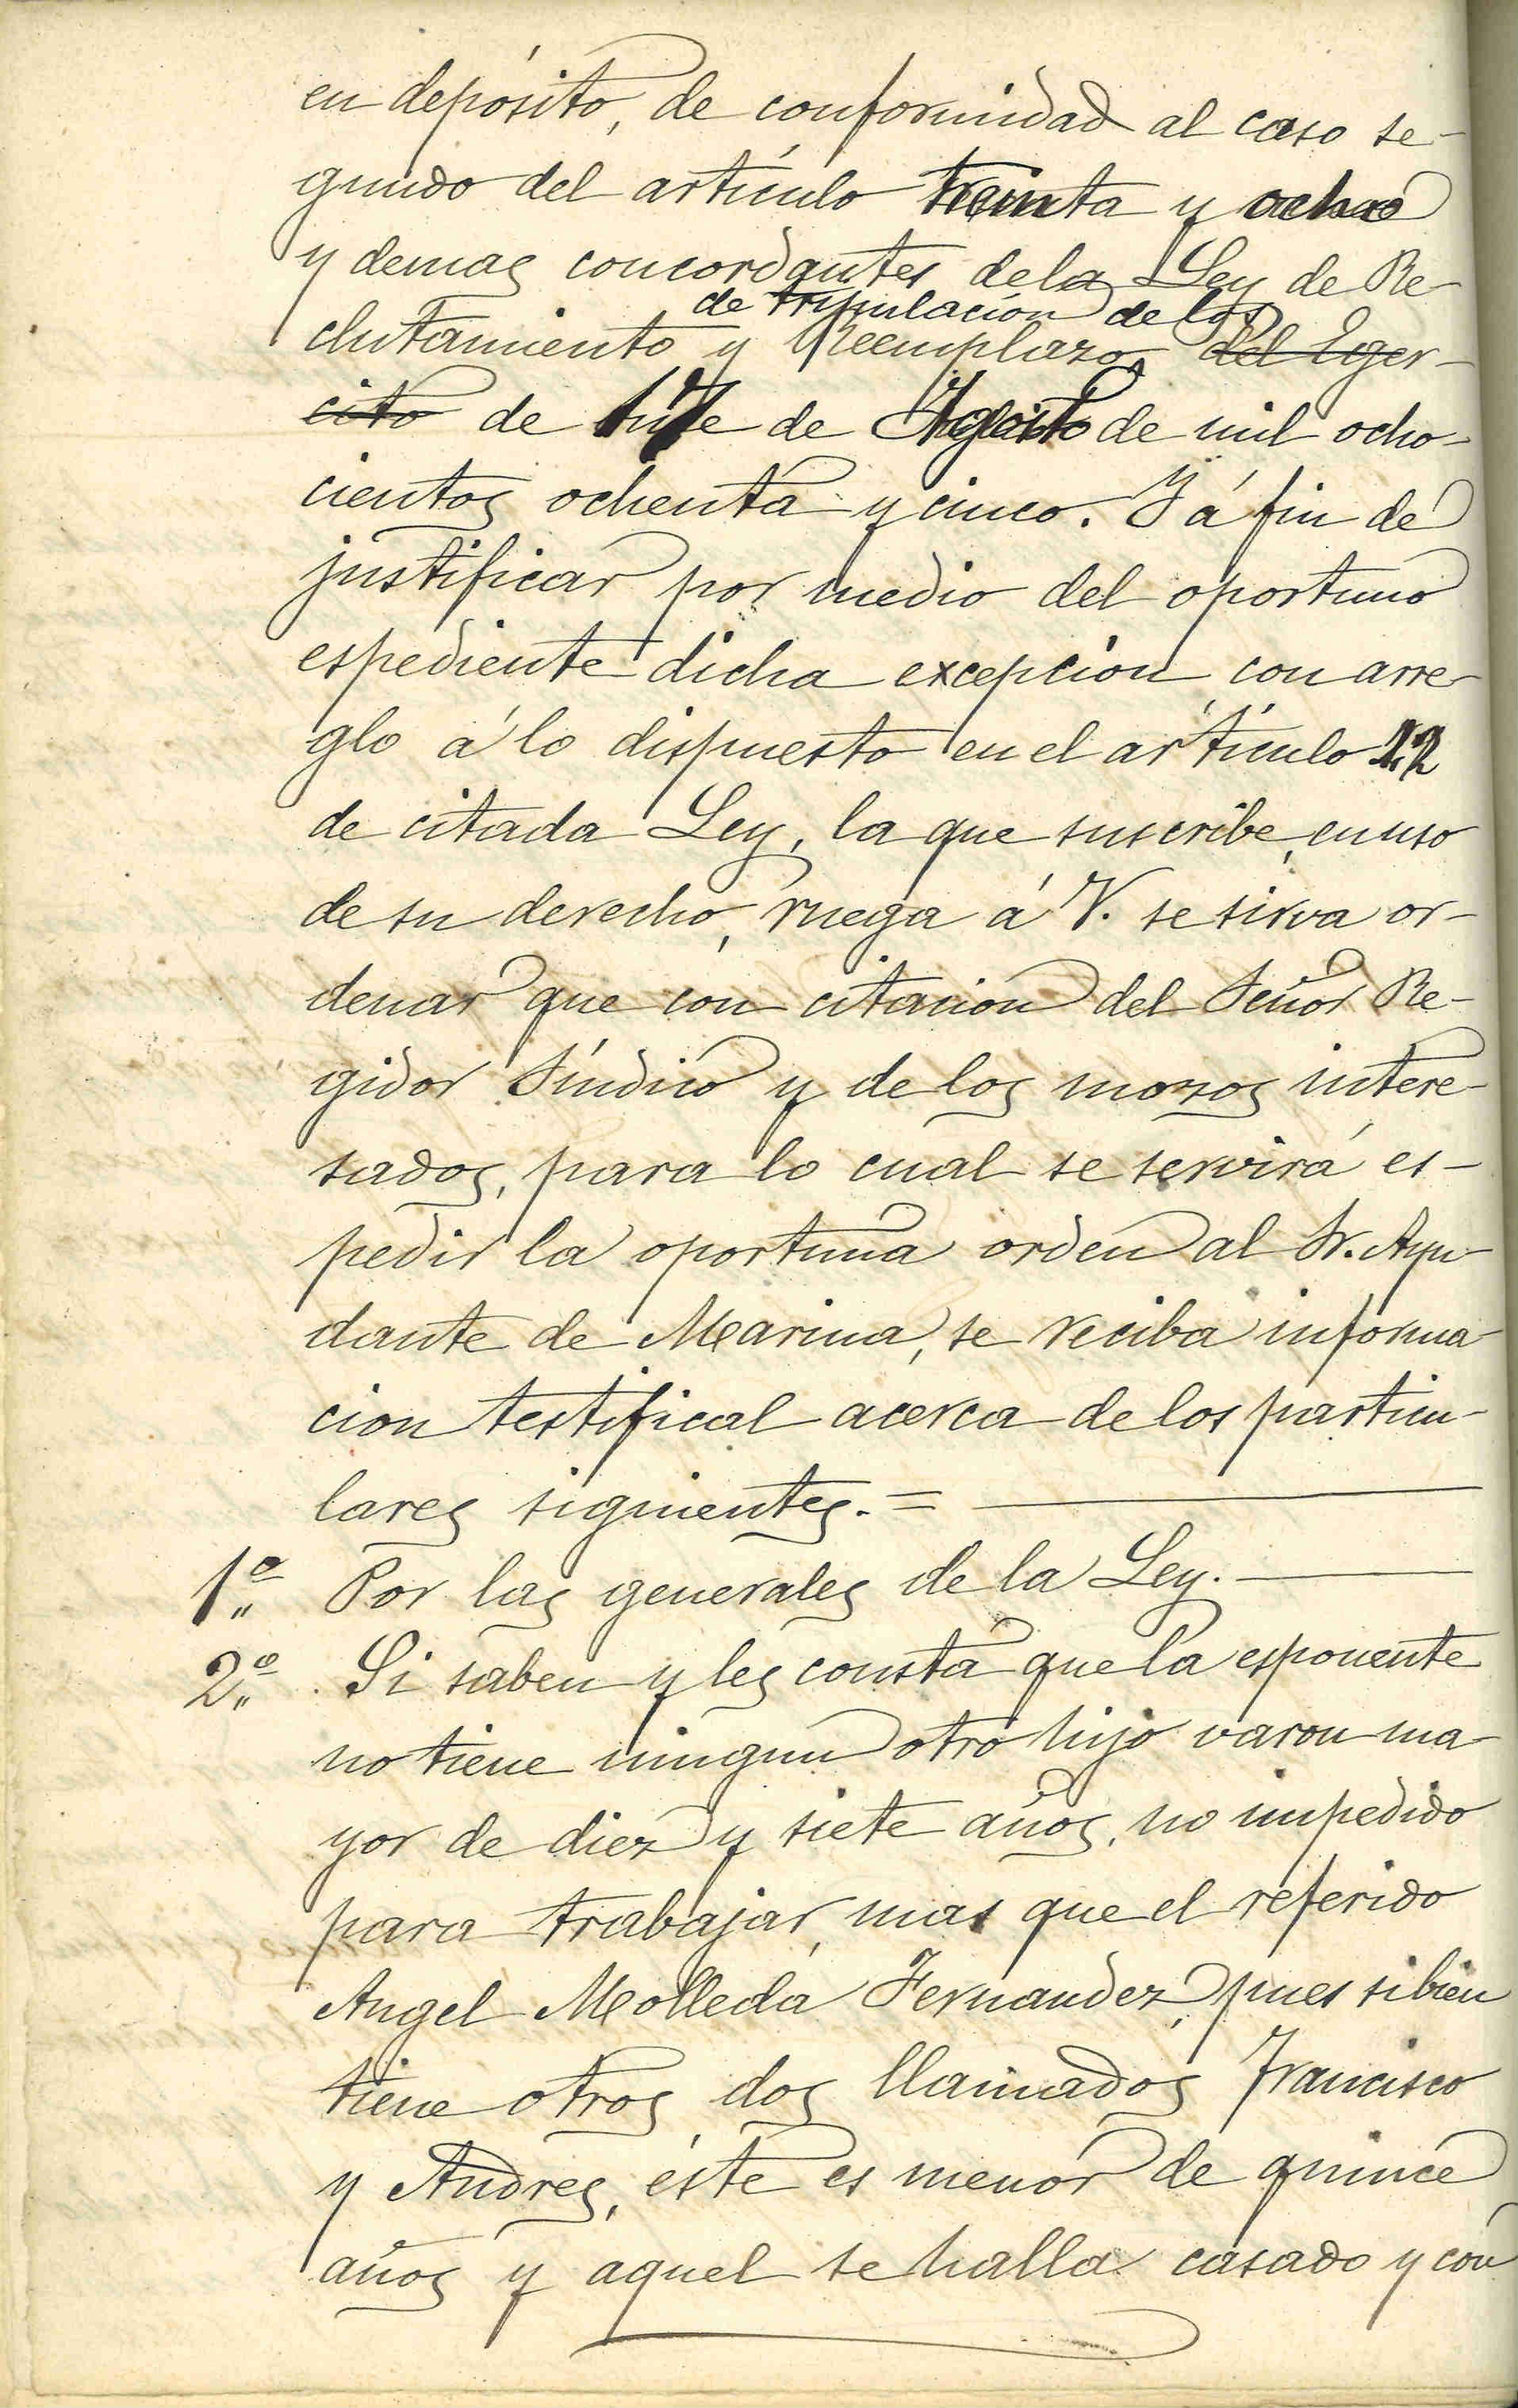 en depósito, de conformidad al caso se-
gundo del artículo treinta y ocho
y demas concordantes de la Ley de Re-
de tripulación de los
clutamiento y Reemplazo del Eger-
cito de de Agosto de mil ocho-
cientos ochenta y cinco. Y á fin de
justificar por medio del oportuno
espediente dicha excepcion con arre-
glo á lo dispuesto en el artículo
de citada Ley, la que suscribe, en uso
de su derecho, ruega á V. se sirva or-
denar que con citacion del Señor Re-
gidor Síndico y de los mozos intere-
sados, para lo cual se servirá es-
pedir la oportuna orden al Sr. Ayu-
dante de Marina, se reciba informa-
cion testifical acerca de los particu-
lares siguientes. =
1.º Por las generales de la Ley.
2.º Si saben y les consta que la esponente
no tiene ningun otro hijo varon ma-
yor de diez y siete años, no impedido
para trabajar, mas que el referido
Angel Molleda Fernandez, pues si bien
tiene otros dos llamados Francisco
y Andres, éste es menor de quince
años y aquel se halla casado y con